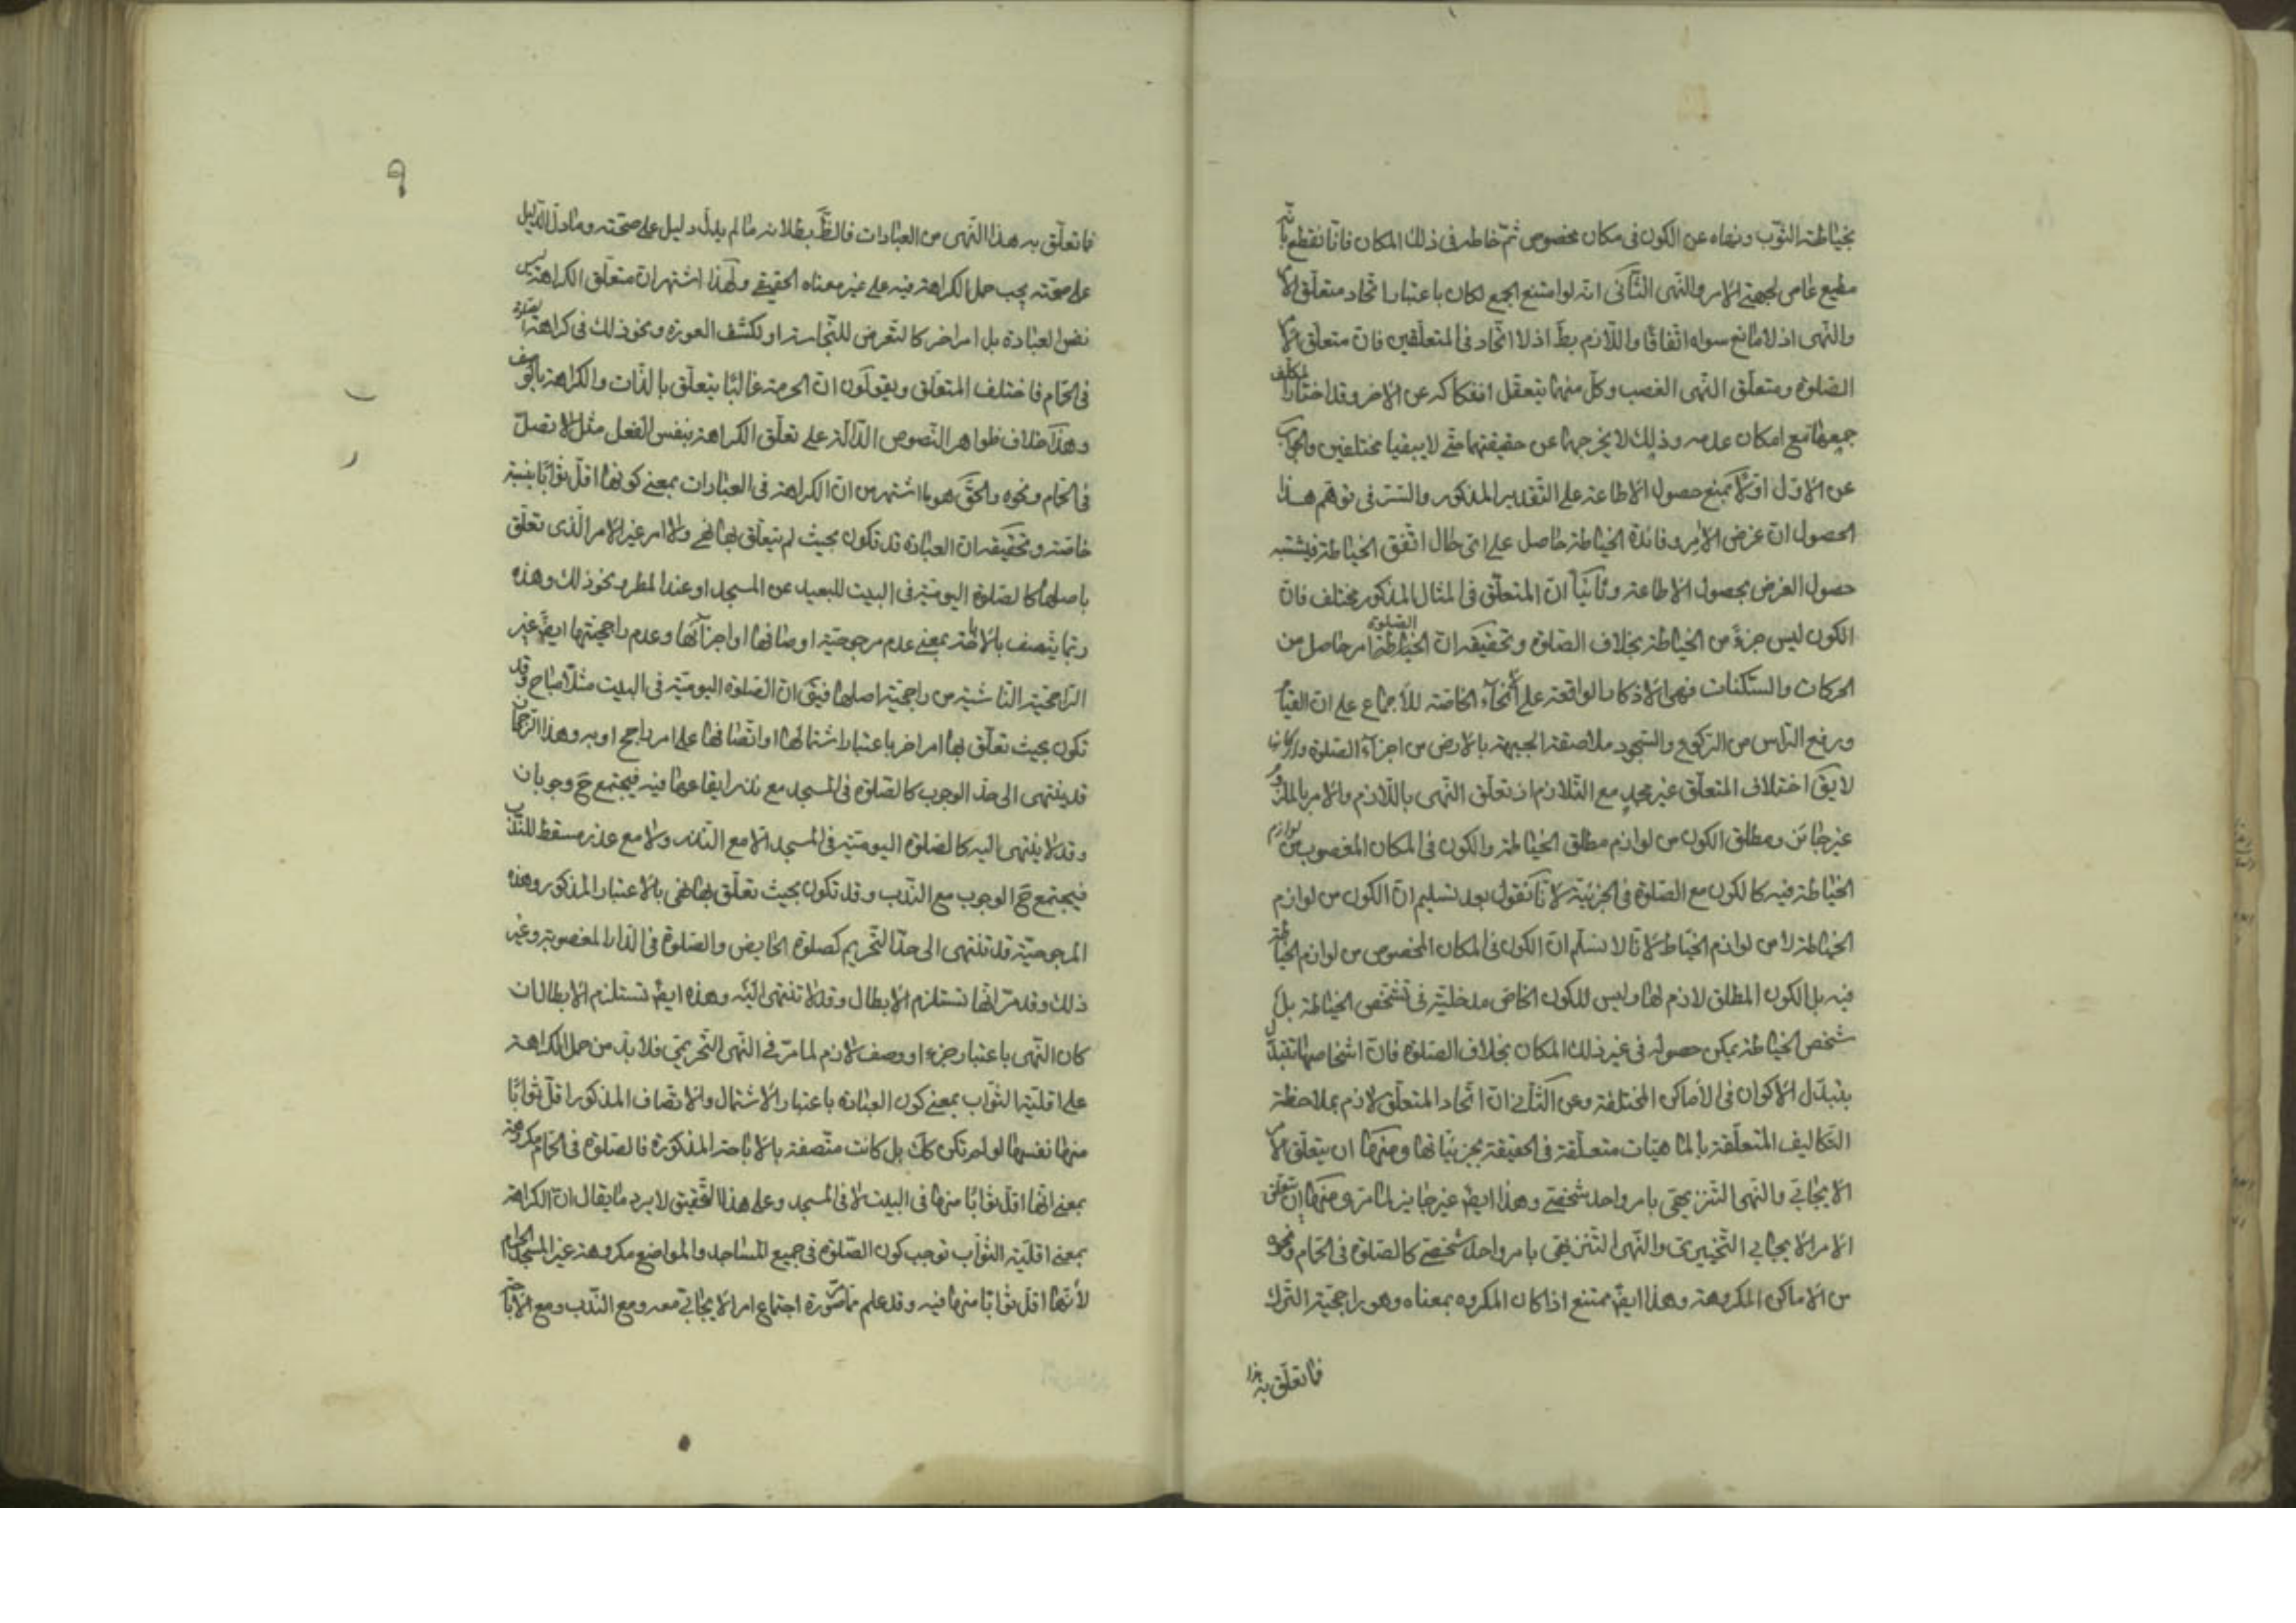 بخياطة الثوب ونهاه عن الكون في مكان مخصوص ثمّ خاطه في ذلك المكان فانّا نقطع بانّه
مطيع عاص لجهتي الامر والنهى الثّاني انّه لو امتنع الجمع لكان باعتبار اتّحاد متعلّق الامر
والنّهى اذ لا مانع سواه اتّفاقًا واللّازم بطّ اذ لا اتّحاد في المتعلّقين فانّ متعلّق الامر
الصّلوة ومتعلّق النّهى الغصب وكلّ منهما يتعقّل انفكاكه عن الاخر وقد اختار المكلّف
جمعهما مع امكان عدمه وذلك لا يخرجهما عن حقيقتهما حتّى لا يبقيا مختلفين والجواب
عن الاوّل اوّلًا بمنع حصول الاطاعة على التّقدير المذكور والسّر في توهّم هذا
الحصول ان غرض الآمر وفائدة الخياطة حاصل على اىّ حال اتّفق الخياطة فيشتبه
حصول الغرض بحصول الاطاعة وثانيًا انّ المتعلّق في المثال المذكور مختلف فانّ
الكون ليس جزءً من الخياطة بخلاف الصّلوة وتحقيقه ان الصّلوة امر حاصل من
الحركات والسّكنات فهى الاذكار الواقعة على انحاء الخاصّة للاجماع على ان القيام
ورفع الرّاس من الرّكوع والسّجود ملاصقة الجبهة بالارض من اجزاء الصّلوة واركانها
لا يقّ اختلاف المتعلّق غير مجدٍ مع التّلازم اذ تعلّق النّهى باللّازم والامر بالملزوم
غير جائز ومطلق الكون من لوازم مطلق الخياطة والكون في المكان المغصوب من لوازم
الخياطة فيه كالكون مع الصّلوة في الجزئيّة لانّا نقول بعد تسليم انّ الكون من لوازم
الخياطة لا من لوازم الخياط لانّا لا نسلّم انّ الكون في المكان المخصوص من لوازم الخياطة
فيه بل الكون المطلق لازم لها وليس للكون الخاصّ مدخليّة في تشخّص الخياطة بل
شخص الخياطة يمكن حصوله في غير ذلك المكان بخلاف الصّلوة فانّ اشخاصها تتبدّل
بتبدّل الاكوان في الأماكن المختلفة وعن الثّاني انّ اتّحاد المتعلّق لازم بملاحظة
التّكاليف المتعلّقة بالماهيّات متعلّقة في الحقيقة بجزئيّاتها ومنها ان يتعلّق الامر
الايجابي والنّهى التّنزيهي بامر واحد شخصيّ وهذا ايضً غير جايز لما مرّ ومنها ان يتعلّق
الامر الايجابي التّخييرى والنّهى التّنزيهي بامر واحد شخصيّ كالصّلوة في الحمّام ونحوه
من الاماكن المكروهة وهذا ايضً ممتنع اذا كان المكروه بمعناه وهو راجحيّة التّرك
فما تعلّق به هذا
٩
فما تعلّق به هذا النّهى من العبادات فالظّ بطلانه ما لم يدلّ دليل على صحّته وما دلّ الدّليل
على صحّته يجب حمل الكراهة فيه على غير معناه الحقيقي ولهذا اشتهر انّ متعلّق الكراهة ليس
نفس العبادة بل امر اخر كالتّعرض للنّجاسة او لكشف العورة ونحو ذلك في كراهة الصلوة
في الحمّام فاختلف المتعلّق ويقولون انّ الحرمة غالبًا يتعلّق بالذّات والكراهة بالوصف
وهذا خلاف ظواهر النّصوص الدّالة على تعلّق الكراهة بنفس الفعل مثل لا تصلّ
في الحمّام ونحوه والحقّ هو ما اشتهر من انّ الكراهة في العبادات بمعنى كونها اقلّ ثوابًا بنسبة
خاصّة وتحقيقه ان العبادة قد تكون بحيث لم يتعلّق بها نهى ولا امر غير الامر الّذى تعلّق
باصلها كالصّلوة اليوميّة في البيت للبعيد عن المسجد او عند المطر ونحو ذلك وهذه
ربّما يتّصف بالاباحة بمعنى عدم مرجوحيّة اوصافها او اجزائها وعدم راجحيّتها ايضً غير
الرّاجحيّة النّاشية من راجحيّة اصلها فيقّ انّ الصّلوة اليوميّة في البيت مثلًا مباح وقد
تكون بحيث تعلّق بها امر اخر باعتبار اشتمالها او اتّصافها على امر راجح او به وهذا الرّجحان
قد ينتهى الى حدّ الوجوب كالصّلوة في المسجد مع نذر ايقاعها فيه فيجتمع حّ وجوبان
وقد لا ينتهى اليه كالصّلوة اليوميّة في المسجد لا مع النّذر ولا مع عذر مسقط للنّدب
فيجتمع حّ الوجوب مع النّدب وقد تكون بحيث تعلّق بها نهى بالاعتبار المذكور وهذه
المرجوحيّة قد تنتهى الى حدّ التّحريم كصلوة الحايض والصّلوة في الدّار المغصوبة وغير
ذلك وقد مرّ انّها تستلزم الابطال وقد لا تنتهى اليه وهذه ايضً تستلزم الابطال ان
كان النّهى باعتبار جزء او وصف لازم لما مرّ في النّهى التّحريمي فلا بدّ من حمل الكراهة
على اقليّة الثّواب بمعنى كون العبادة باعتبار الاشتمال والاتصاف المذكور اقلّ ثوابًا
منها نفسها لو لم تكن كك بل كانت متّصفة بالاباحة المذكورة فالصّلوة في الحمّام مكروهة
بمعنى انّها اقلّ ثوابًا منها في البيت لا في المسجد وعلى هذا التّحقيق لا يرد ما يقال انّ الكراهة
بمعنى اقليّة الثّواب توجب كون الصّلوة في جميع المساجد والمواضع مكروهة غير المسجد الحرام
لأنّها اقلّ ثوابًا منها فيه وقد علم ممّا صورة اجتماع امر الايجابي معه ومع النّدب ومع الاباحة